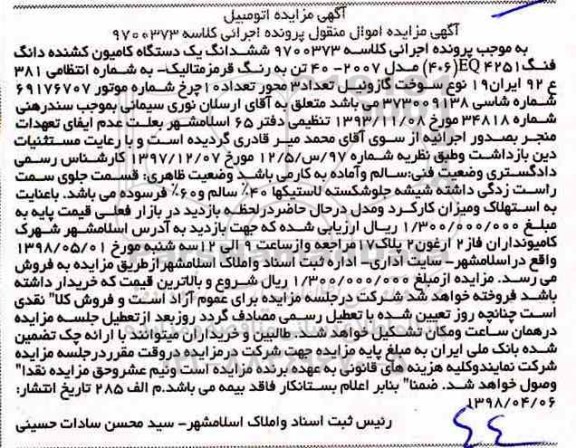 آگهی مزایده اتومبیل
آگهی مزایده اموال منقول پرونده اجرائی کلاسه ۹۷۰۰۳۷۳
به موجب پرونده اجرائی کلاسه ۹۷۰۰۳۷۳ ششدانگ یک دستگاه کامیون کشنده دانگ
فنگ EQ ۴۲۵۱(۴۰۶) مدل ۲۰۰۷- ۴۰ تن به رنگ قرمزمتالیک- به شماره انتظامی ۳۸۱
ع ۹۲ ایران۱۹ نوع سوخت گازوئیل تعداد۳ محور تعداد۱۰چرخ شماره موتور ۶۹۱۷۶۷۰۷
شماره شاسی ۳۷۳۰۰۱۳۸ می باشد متعلق به آقای ارسلان نوری سیمانی بموجب سندرهنی
شماره ۳۴۸۱۸ مورخ ۱۳۹۳/۱۱/۰۸ تنظیمی دفتر ۶۵ اسلامشهر بعلت عدم ایفای تعهدات
منجر بصدور اجرائیه از سوی آقای محمد میر قادری گردیده است و با رعایت مستثنیات
دین بازداشت وطبق نظریه شماره ۹۷/س/۱۲/۵ مورخ ۱۳۹۷/۱۲/۰۷ کارشناس رسمی
دادگستری وضعیت فنی:سالم وآماده به کارمی باشد وضعیت ظاهری: قسمت جلوی سمت
راست زدگی داشته شیشه جلوشکسته لاستیکها ۴۰٪ سالم و۶۰٪ فرسوده می باشد. باعنایت
به استهلاک ومیزان کارکرد ومدل درحال حاضردرلحظه بازدید در بازار فعلی قیمت پایه به
مبلغ ۱/۳۰۰/۰۰۰/۰۰۰ ریال ارزیابی شده که جهت بازدید به آدرس اسلامشهر شهرک
کامیونداران فاز۲ ارغون۲ پلاک۱۷مراجعه وازساعت ۹ الی ۱۲ سه شنبه مورخ ۱۳۹۸/۰۵/۰۱
واقع دراسلامشهر- سایت اداری- اداره ثبت اسناد واملاک اسلامشهرازطریق مزایده به فروش
می رسد. مزایده ازمبلغ ۱/۳۰۰/۰۰۰/۰۰۰ ریال شروع و بالاترین قیمت که خریدار داشته
باشد فروخته خواهد شد شرکت درجلسه مزایده برای عموم آزاد است و فروش کلا" نقدی
است چنانچه روز تعیین شده با تعطیل رسمی مصادف گردد روزبعد ازتعطیل جلسه مزایده
درهمان ساعت ومکان تشکیل خواهد شد. طالبین و خریداران میتوانند با ارائه چک تضمین
شده بانک ملی ایران به مبلغ پایه مزایده جهت شرکت درمزایده دروقت مقرردرجلسه مزایده
شرکت نمایندوکلیه هزینه های قانونی به عهده برنده مزایده است ونیم عشروحق مزایده نقدا"
وصول خواهد شد. ضمنا" بنابر اعلام بستانکار فاقد بیمه می باشد.م الف ۲۸۵ تاریخ انتشار:
۱۳۹۸/۰۴/۰۶
رئیس ثبت اسناد واملاک اسلامشهر- سید محسن سادات حسینی